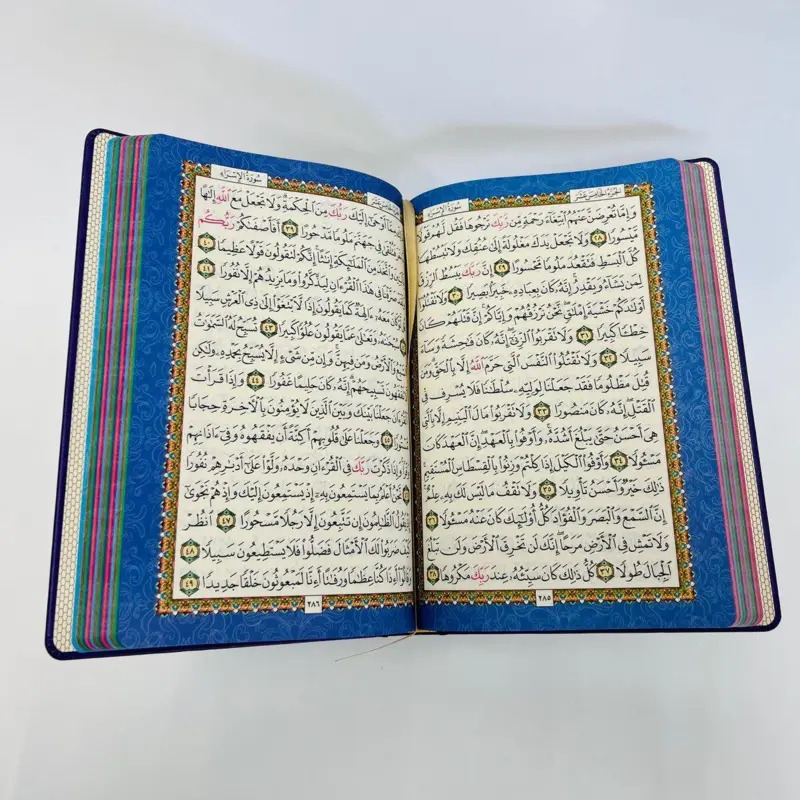 الجزء الخامس عشر
سورة الإسراء
وَإِمَّا تُعْرِضَنَّ عَنْهُمُ ٱبْتِغَآءَ رَحْمَةٍ مِّن رَّبِّكَ تَرْجُوهَا فَقُل لَّهُمْ
مَّيْسُورًا ٢٨ وَلَا تَجْعَلْ يَدَكَ مَغْلُولَةً إِلَىٰ عُنُقِكَ وَلَا تَبْسُطْهَا
كُلَّ ٱلْبَسْطِ فَتَقْعُدَ مَلُومًا مَّحْسُورًا ٢٩ إِنَّ رَبَّكَ يَبْسُطُ
لِمَن يَشَآءُ وَيَقْدِرُ إِنَّهُۥ كَانَ بِعِبَادِهِۦ خَبِيرًۢا بَصِيرًا ٣٠
أَوْلَٰدَكُمْ خَشْيَةَ إِمْلَٰقٍ نَّحْنُ نَرْزُقُهُمْ وَإِيَّاكُمْ إِنَّ قَتْلَهُمْ كَانَ
خِطْـًٔا كَبِيرًا ٣١ وَلَا تَقْرَبُوا۟ ٱلزِّنَىٰٓ إِنَّهُۥ كَانَ فَٰحِشَةً وَسَآءَ
سَبِيلًا ٣٢ وَلَا تَقْتُلُوا۟ ٱلنَّفْسَ ٱلَّتِى حَرَّمَ ٱللَّهُ إِلَّا بِٱلْحَقِّ وَمَن
قُتِلَ مَظْلُومًا فَقَدْ جَعَلْنَا لِوَلِيِّهِۦ سُلْطَٰنًا فَلَا يُسْرِف فِّى
ٱلْقَتْلِ إِنَّهُۥ كَانَ مَنصُورًا ٣٣ وَلَا تَقْرَبُوا۟ مَالَ ٱلْيَتِيمِ إِلَّا بِٱلَّتِى
هِىَ أَحْسَنُ حَتَّىٰ يَبْلُغَ أَشُدَّهُۥ وَأَوْفُوا۟ بِٱلْعَهْدِ إِنَّ ٱلْعَهْدَ كَانَ
مَسْـُٔولًا ٣٤ وَأَوْفُوا۟ ٱلْكَيْلَ إِذَا كِلْتُمْ وَزِنُوا۟ بِٱلْقِسْطَاسِ ٱلْمُسْتَقِيمِ
ذَٰلِكَ خَيْرٌ وَأَحْسَنُ تَأْوِيلًا ٣٥ وَلَا تَقْفُ مَا لَيْسَ لَكَ بِهِۦ عِلْمٌ
إِنَّ ٱلسَّمْعَ وَٱلْبَصَرَ وَٱلْفُؤَادَ كُلُّ أُو۟لَٰٓئِكَ كَانَ عَنْهُ مَسْـُٔولًا ٣٦
وَلَا تَمْشِ فِى ٱلْأَرْضِ مَرَحًا إِنَّكَ لَن تَخْرِقَ ٱلْأَرْضَ وَلَن تَبْلُغَ
ٱلْجِبَالَ طُولًا ٣٧ كُلُّ ذَٰلِكَ كَانَ سَيِّئُهُۥ عِندَ رَبِّكَ مَكْرُوهًا ٣٨
٢٨٥
سورة الإسراء
أَوْحَىٰٓ إِلَيْكَ رَبُّكَ مِنَ ٱلْحِكْمَةِ وَلَا تَجْعَلْ مَعَ ٱللَّهِ إِلَٰهًا
فَتُلْقَىٰ فِى جَهَنَّمَ مَلُومًا مَّدْحُورًا ٣٩ أَفَأَصْفَىٰكُمْ رَبُّكُم
وَٱتَّخَذَ مِنَ ٱلْمَلَٰٓئِكَةِ إِنَٰثًا إِنَّكُمْ لَتَقُولُونَ قَوْلًا عَظِيمًا ٤٠
فِى هَٰذَا ٱلْقُرْءَانِ لِيَذَّكَّرُوا۟ وَمَا يَزِيدُهُمْ إِلَّا نُفُورًا ٤١
مَعَهُۥٓ ءَالِهَةٌ كَمَا يَقُولُونَ إِذًا لَّٱبْتَغَوْا۟ إِلَىٰ ذِى ٱلْعَرْشِ سَبِيلًا
وَتَعَٰلَىٰ عَمَّا يَقُولُونَ عُلُوًّا كَبِيرًا ٤٣ تُسَبِّحُ لَهُ ٱلسَّمَٰوَٰتُ
وَٱلْأَرْضُ وَمَن فِيهِنَّ وَإِن مِّن شَىْءٍ إِلَّا يُسَبِّحُ بِحَمْدِهِۦ وَلَٰكِن
تَفْقَهُونَ تَسْبِيحَهُمْ إِنَّهُۥ كَانَ حَلِيمًا غَفُورًا ٤٤ وَإِذَا قَرَأْتَ
جَعَلْنَا بَيْنَكَ وَبَيْنَ ٱلَّذِينَ لَا يُؤْمِنُونَ بِٱلْءَاخِرَةِ حِجَابًا
٤٥ وَجَعَلْنَا عَلَىٰ قُلُوبِهِمْ أَكِنَّةً أَن يَفْقَهُوهُ وَفِىٓ ءَاذَانِهِمْ
وَإِذَا ذَكَرْتَ رَبَّكَ فِى ٱلْقُرْءَانِ وَحْدَهُۥ وَلَّوْا۟ عَلَىٰٓ أَدْبَٰرِهِمْ نُفُورًا
نَّحْنُ أَعْلَمُ بِمَا يَسْتَمِعُونَ بِهِۦٓ إِذْ يَسْتَمِعُونَ إِلَيْكَ وَإِذْ هُمْ نَجْوَىٰٓ
يَقُولُ ٱلظَّٰلِمُونَ إِن تَتَّبِعُونَ إِلَّا رَجُلًا مَّسْحُورًا ٤٧ ٱنظُرْ
كَيْفَ ضَرَبُوا۟ لَكَ ٱلْأَمْثَالَ فَضَلُّوا۟ فَلَا يَسْتَطِيعُونَ سَبِيلًا ٤٨
وَقَالُوٓا۟ أَءِذَا كُنَّا عِظَٰمًا وَرُفَٰتًا أَءِنَّا لَمَبْعُوثُونَ خَلْقًا جَدِيدًا ٤٩
٢٨٦